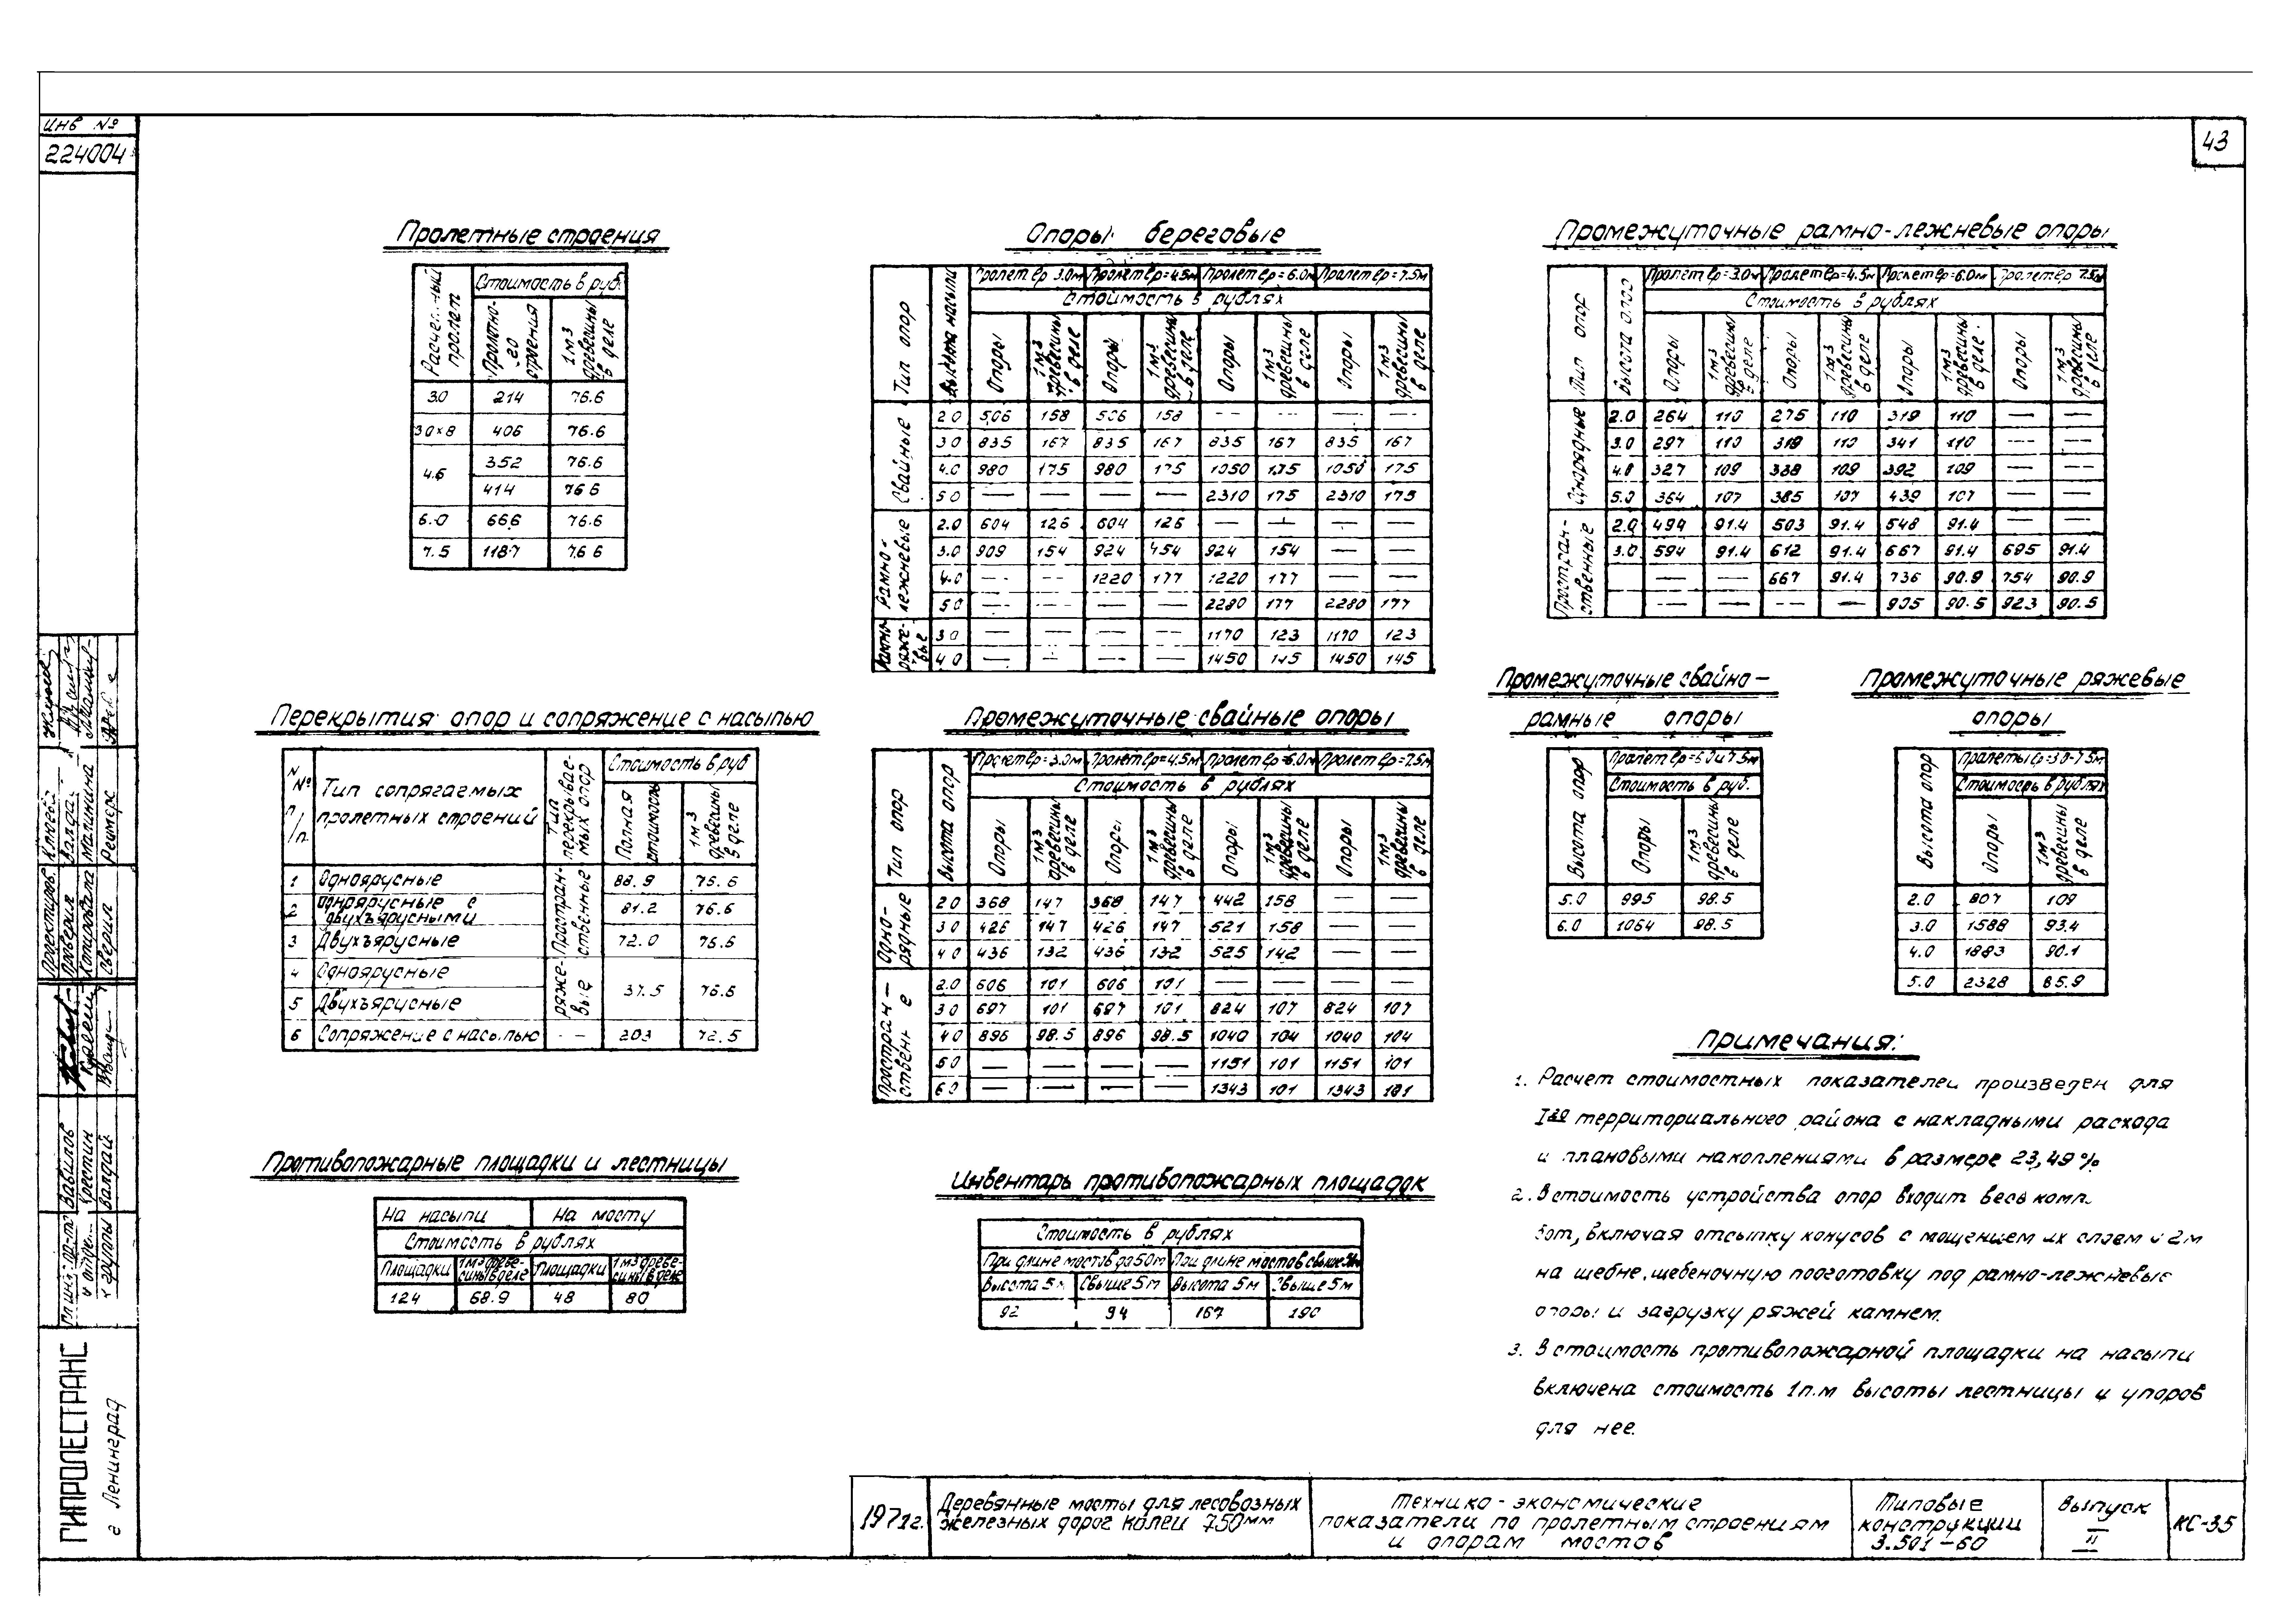 Инв №
224004
43
Пролетные строения
Расчетный пролет | Стоимость в руб.
Пролетного строения | 1м3 древесины в деле
3.0 214 76.6
3.0×8 406 76.6
4.5 352 76.6
414 76.6
6.0 666 76.6
7.5 1187 76.6
Опоры береговые
Тип опор | Высота насыпи | Пролет ℓр=3.0м | Пролет ℓр=4.5м | Пролет ℓр=6.0м | Пролет ℓр=7.5м
Стоимость в рублях
Опоры | 1м3 древесины в деле | Опоры | 1м3 древесины в деле | Опоры | 1м3 древесины в деле | Опоры | 1м3 древесины в деле
Свайные
2.0 506 158 506 158 — — — —
3.0 835 167 835 167 835 167 835 167
4.0 980 175 980 175 1050 175 1050 175
5.0 — — — — 2310 175 2310 175
Рамно-лежневые
2.0 604 126 604 126 — — — —
3.0 909 154 924 154 924 154 — —
4.0 — — 1220 177 1220 177 — —
5.0 — — — — 2280 177 2280 177
Рамно-ряжевые
3.0 — — — — 1170 123 1170 123
4.0 — — — — 1450 145 1450 145
Промежуточные рамно-лежневые опоры
Тип опор | Высота опор | Пролет ℓр=3.0м | Пролет ℓр=4.5м | Пролет ℓр=6.0м | Пролет ℓр 7.5м
Стоимость в рублях
Опоры | 1м3 древесины в деле | Опоры | 1м3 древесины в деле | Опоры | 1м3 древесины в деле | Опоры | 1м3 древесины в деле
Однорядные
2.0 264 110 275 110 319 110 — —
3.0 297 110 319 110 341 110 — —
4.0 327 109 338 109 392 109 — —
5.0 364 107 385 107 439 107 — —
Пространственные
2.0 494 91.4 503 91.4 548 91.4 — —
3.0 594 91.4 612 91.4 667 91.4 695 91.4
— — 667 91.4 736 90.9 754 90.9
— — — — 905 90.5 923 90.5
Перекрытия опор и сопряжение с насыпью
N№ п/п. | Тип сопрягаемых пролетных строений | Тип перекрываемых опор | Стоимость в руб
Полная стоимость | 1м3 древесины в деле
1 Одноярусные Пространственные 88.9 76.6
2 Одноярусные с двухъярусными 81.2 76.6
3 Двухъярусные 72.0 76.6
4 Одноярусные ряжевые 37.5 76.6
5 Двухъярусные
6 Сопряжение с насыпью — 203 72.5
Промежуточные свайные опоры
Тип опор | Высота опор | Пролет ℓр=3.0м | Пролет ℓр=4.5м | Пролет ℓр=6.0м | Пролет ℓр=7.5м
Стоимость в рублях
Опоры | 1м3 древесины в деле | Опоры | 1м3 древесины в деле | Опоры | 1м3 древесины в деле | Опоры | 1м3 древесины в деле
Однорядные
2.0 368 147 368 147 442 158 — —
3.0 426 147 426 147 521 158 — —
4.0 436 132 436 132 525 142 — —
Пространственные
2.0 606 101 606 101 — — — —
3.0 697 101 697 101 824 107 824 107
4.0 896 98.5 896 98.5 1040 104 1040 104
5.0 — — — — 1151 101 1151 101
6.0 — — — — 1343 101 1343 101
Промежуточные свайно-
рамные опоры
Высота опор | Пролет ℓр=6.0и7.5м
Стоимость в руб.
Опоры | 1м3 древесины в деле
5.0 995 98.5
6.0 1064 98.5
Промежуточные ряжевые
опоры
Высота опор | Пролеты ℓр=3.0-7.5м
Стоимость в рублях
Опоры | 1м3 древесины в деле
2.0 807 109
3.0 1588 93.4
4.0 1883 90.1
5.0 2328 85.9
Противопожарные площадки и лестницы
На насыпи | На мосту
Стоимость в рублях
Площадки | 1м3 древесины в деле | Площадки | 1м3 древесины в деле
124 68.9 48 80
Инвентарь противопожарных площадок
Стоимость в рублях
При длине мостов до 50м | При длине мостов свыше 50м
Высота 5м | Свыше 5м | Высота 5м | Свыше 5м
92 94 167 190
Примечания:
1. Расчет стоимостных показателей произведен для
I го территориального района с накладными расхода
и плановыми накоплениями в размере 23,49%
2. В стоимость устройства опор входит весь комп.
бот, включая отсыпку конусов с мощением их слоем 0.2м
на щебне, щебеночную подготовку под рамно-лежневые
опоры и загрузку ряжей камнем.
3. В стоимость противопожарной площадки на насыпи
включена стоимость 1п.м высоты лестницы и упоров
для нее.
Проектиров. Клюева
Проверил Валдай
Копировала Малинина
Сверил
Вавилов
Крестин
Валдай
группы
ГИПРОЛЕСТРАНС
г Ленинград
1971г.
Деревянные мосты для лесовозных
железных дорог колеи 750мм
Технико-экономические
показатели по пролетным строениям
и опорам мостов
Типовые
конструкции
3.501-60
Выпуск
II
КС-35